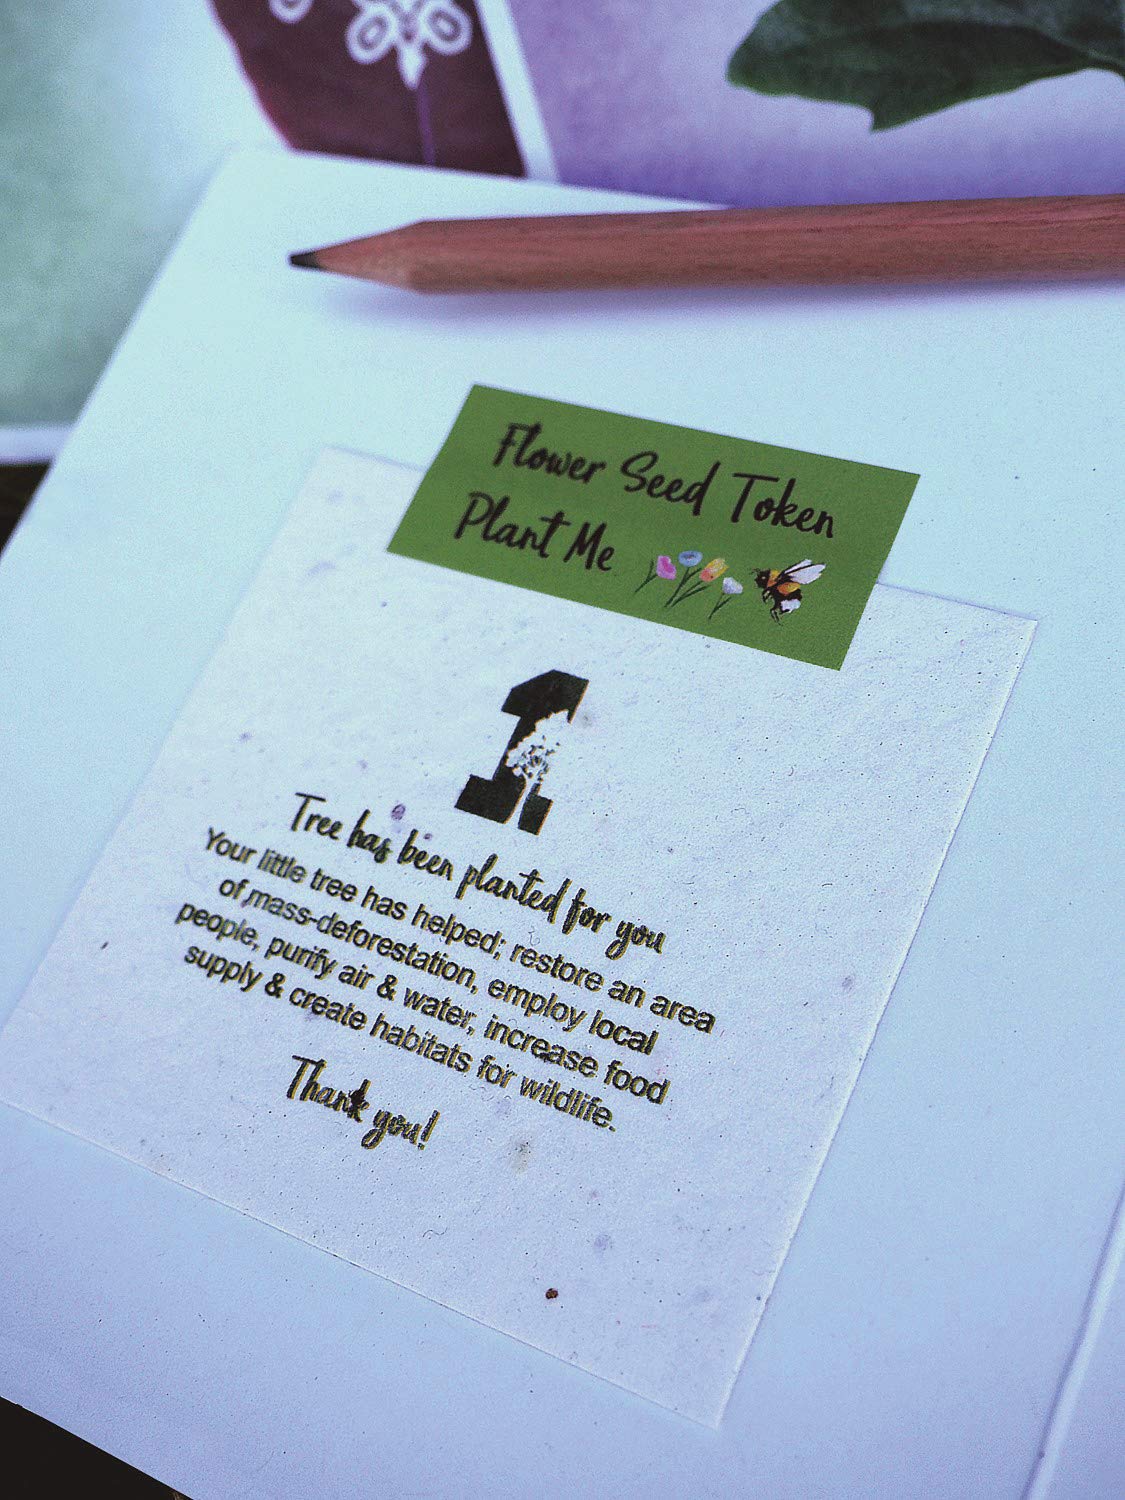 Flower Seed Token
Plant Me
1
Tree has been planted for you
Your little tree has helped; restore an area
of mass-deforestation, employ local
people, purify air & water, increase food
supply & create habitats for wildlife.
Thank you!